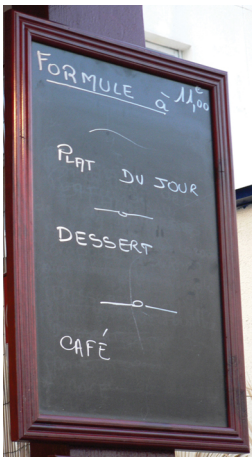 FORMULE à 11,00€
PLAT DU JOUR
DESSERT
CAFÉ